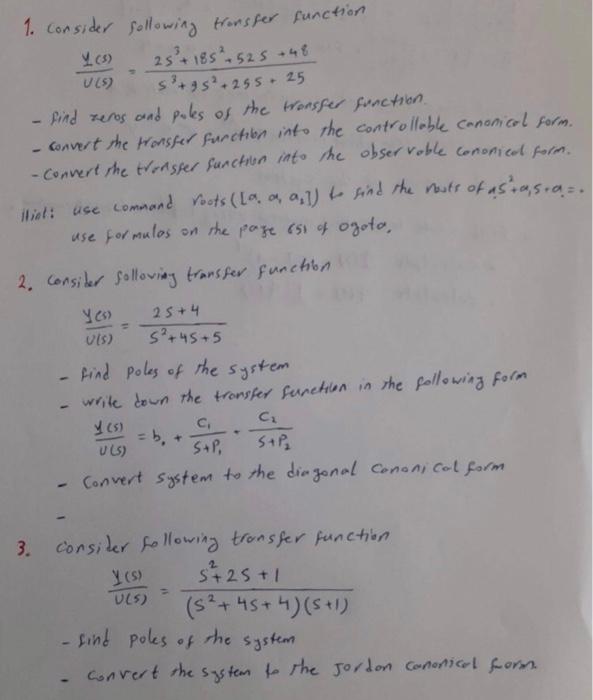 1. Consider following transfer function
Y(s)/U(s) = 2s³+18s²+52s+48 / s³+9s²+25s+25
- find zeros and poles of the transfer function.
- convert the transfer function into the controllable canonical form.
- Convert the transfer function into the observable canonical form.
Hint: use command roots([a₀ a₁ a₂]) to find the roots of a₀s²+a₁s+a₂=0
use formulas on the page 651 of ogata.
2. Consider following transfer function
Y(s)/U(s) = 2s+4 / s²+4s+5
- find poles of the system
- write down the transfer function in the following form
Y(s)/U(s) = b₀ + C₁/s+P₁ + C₂/s+P₂
- Convert system to the diagonal canonical form
-
3. Consider following transfer function
Y(s)/U(s) = s²+2s+1 / (s²+4s+4)(s+1)
- find poles of the system
- convert the system to the Jordon canonical form